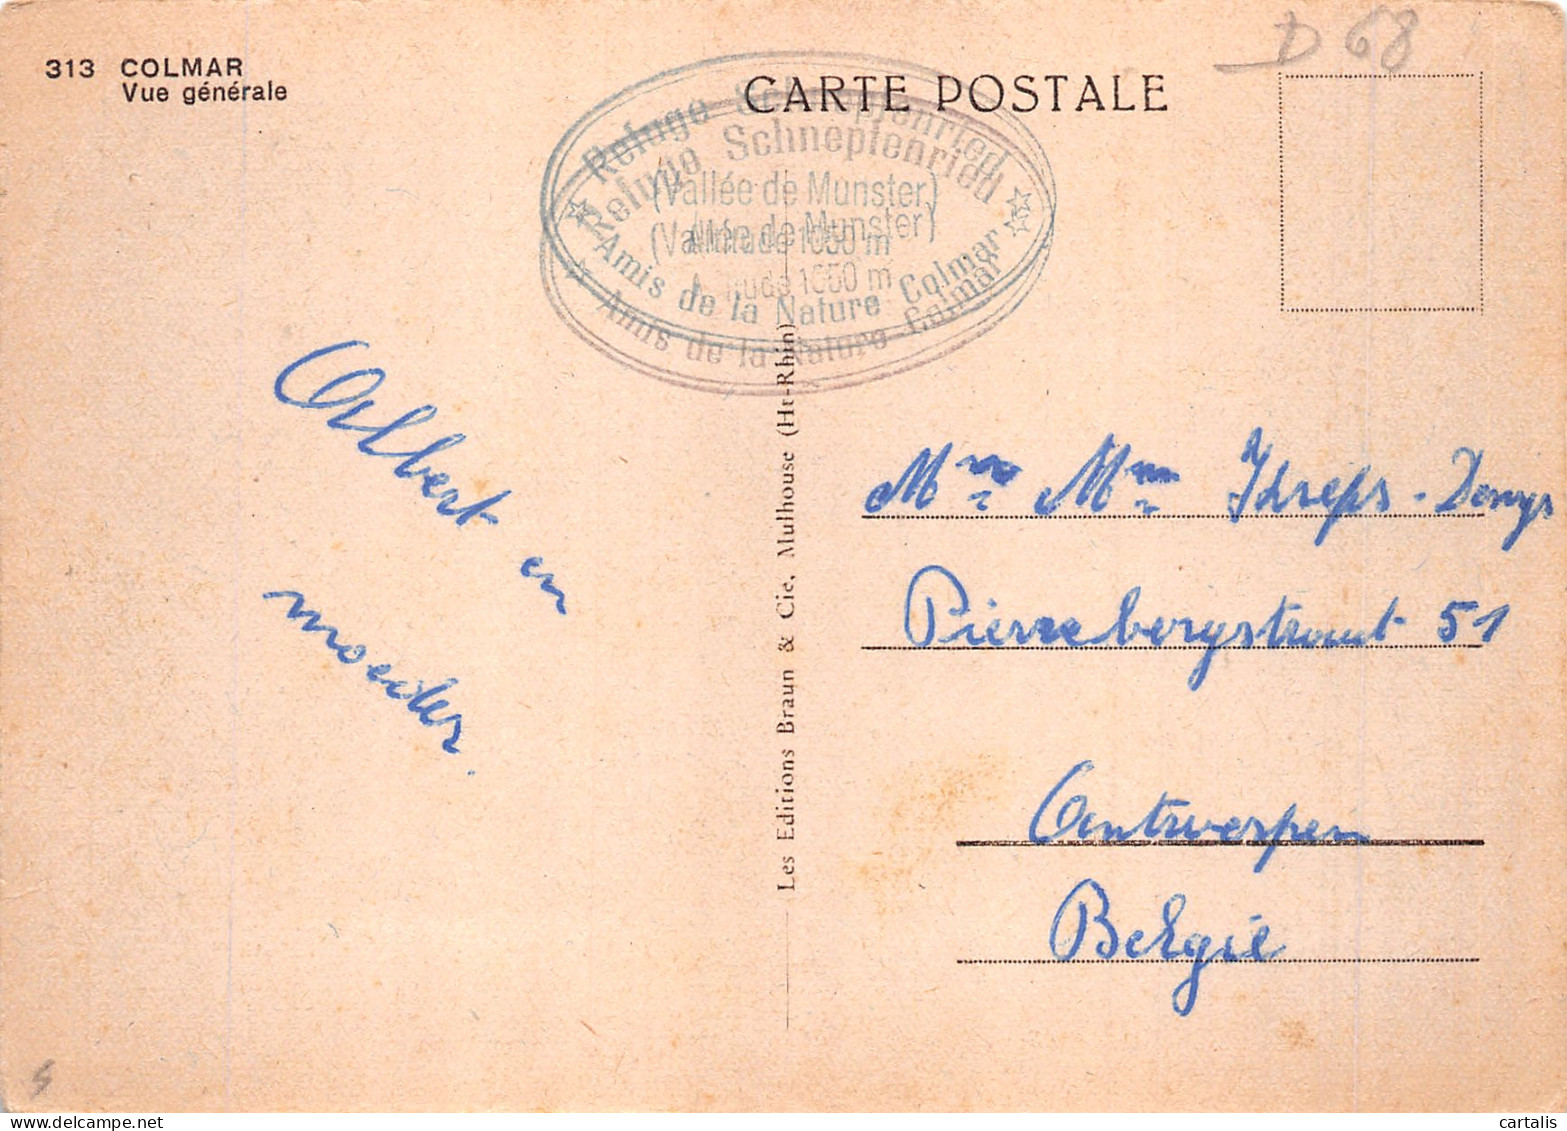 D 68
313 COLMAR
Vue générale
CARTE POSTALE
Refuge Schnepfenried
(Vallée de Munster)
Altitude 1050 m
Amis de la Nature Colmar
Refuge Schnepfenried
(Vallée de Munster)
Altitude 1050 m
Amis de la Nature Colmar
Albert en
moeder.
Les Editions Braun & Cie, Mulhouse (Ht-Rhin)
Mr Mm - Denys
Pierrebergstraat 51
Antwerpen
België